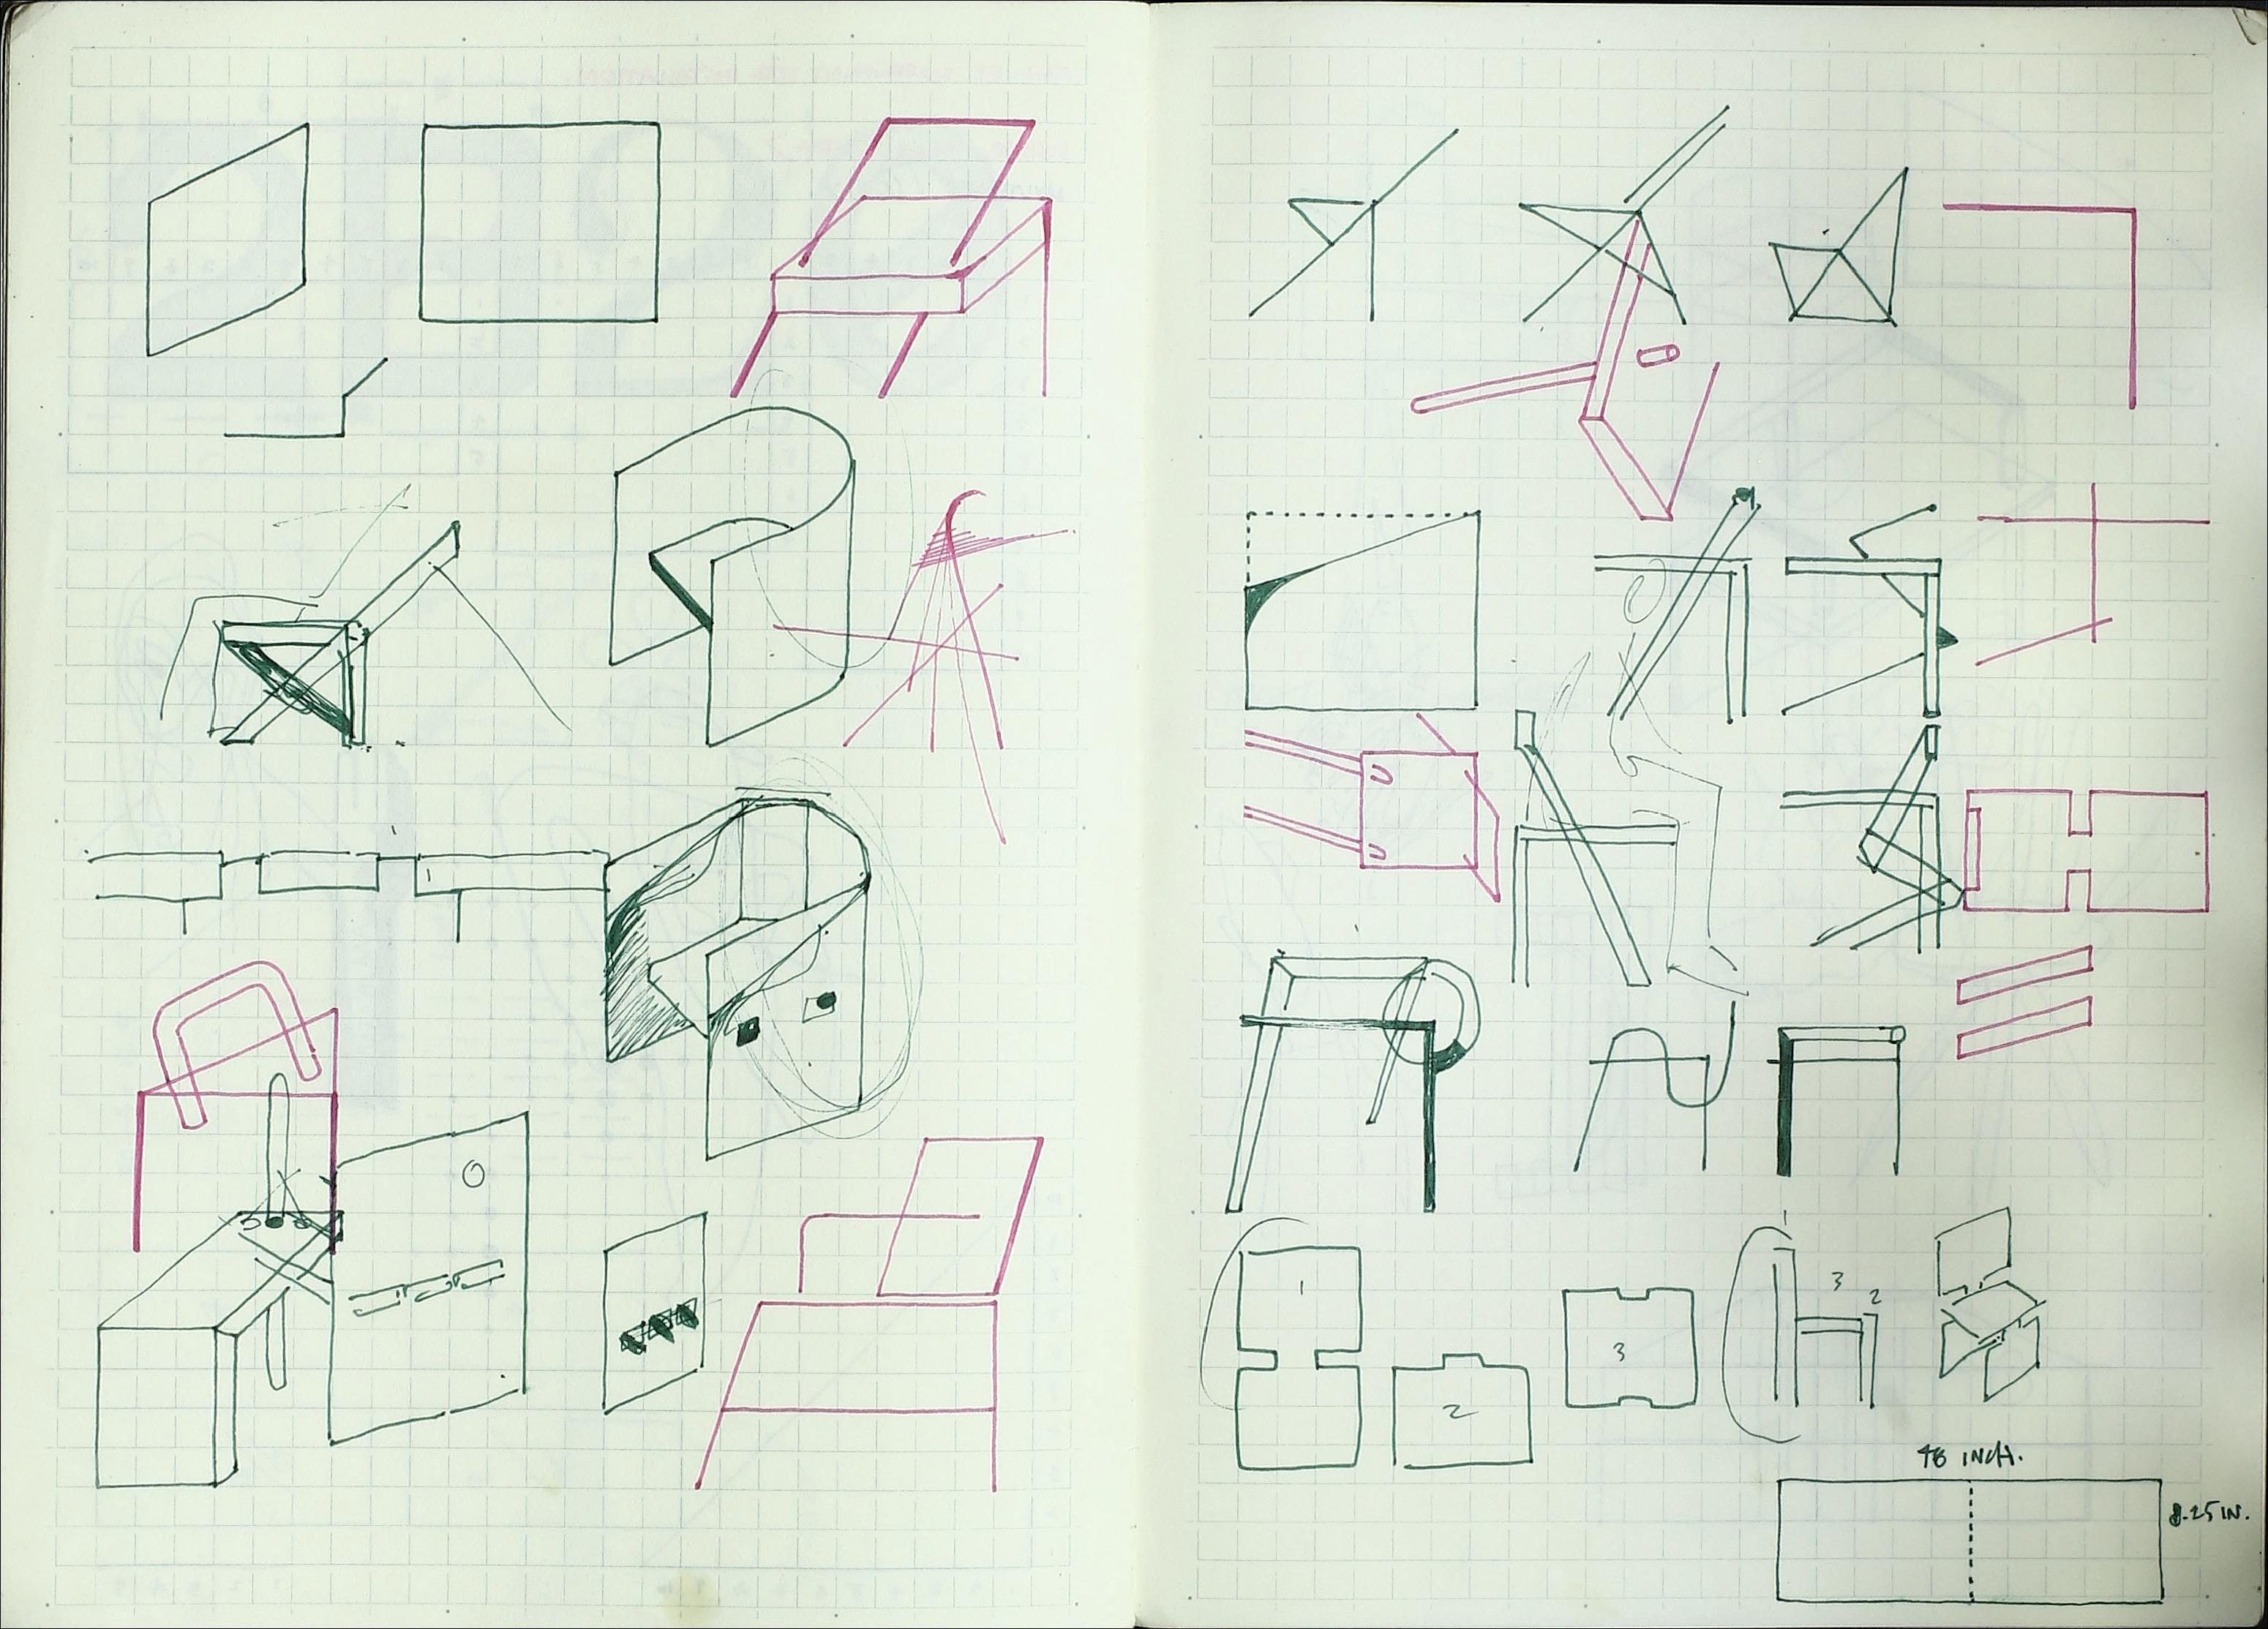 1
2
3
3
2
48 INCH.
8.25 IN.